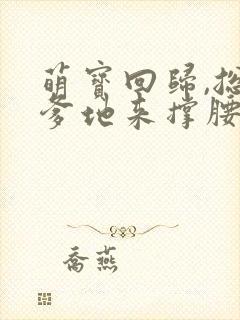 萌寶回歸,總
爹地来撐腰
喬燕